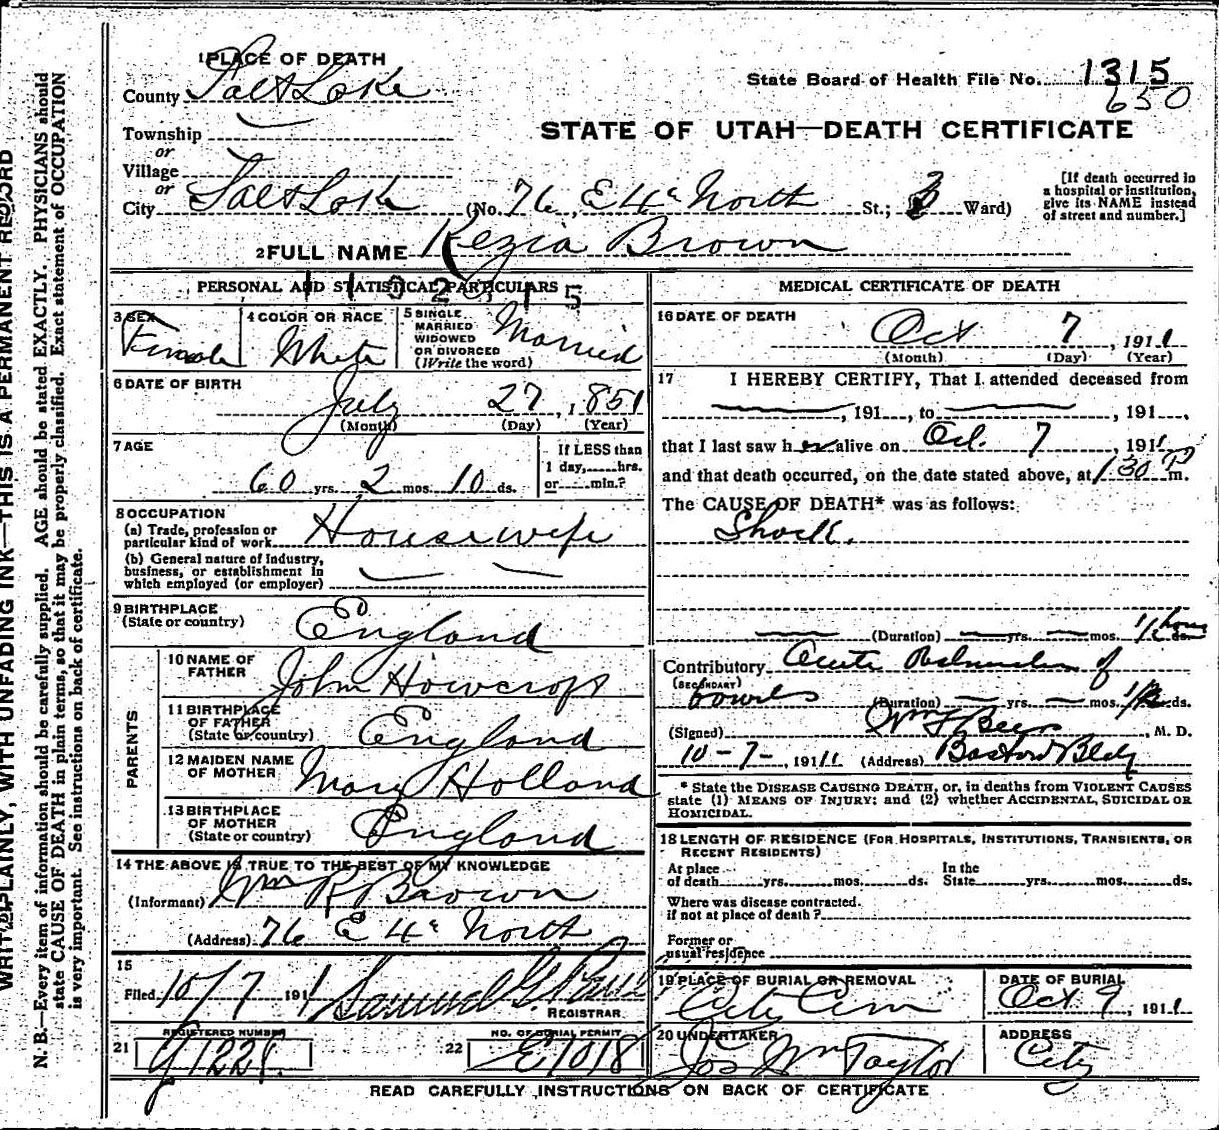 WRITE PLAINLY, WITH UNFADING INK—THIS IS A PERMANENT RECORD
N. B.—Every item of information should be carefully supplied. AGE should be stated EXACTLY. PHYSICIANS should
state CAUSE OF DEATH in plain terms, so that it may be properly classified. Exact statement of OCCUPATION
is very important. See instructions on back of certificate.
1 PLACE OF DEATH
County Salt Lake
State Board of Health File No. 1315
650
Township
or
Village
or
STATE OF UTAH—DEATH CERTIFICATE
City Salt Lake (No. 76, E 4th North St.; 3 Ward)
[If death occurred in
a hospital or institution,
give its NAME instead
of street and number.]
2 FULL NAME Kezia Brown
PERSONAL AND STATISTICAL PARTICULARS
3 SEX
Female
4 COLOR OR RACE
White
5 SINGLE,
MARRIED
WIDOWED
OR DIVORCED
(Write the word)
Married
6 DATE OF BIRTH
July 27, 1851
(Month) (Day) (Year)
7 AGE
60 yrs. 2 mos. 10 ds.
If LESS than
1 day,......hrs.
or......min.?
8 OCCUPATION
(a) Trade, profession or
particular kind of work Housewife
(b) General nature of Industry,
business, or establishment in
which employed (or employer)
9 BIRTHPLACE
(State or country) England
PARENTS
10 NAME OF
FATHER John Howcroft
11 BIRTHPLACE
OF FATHER
(State or country) England
12 MAIDEN NAME
OF MOTHER Mary Holland
13 BIRTHPLACE
OF MOTHER
(State or country) England
14 THE ABOVE IS TRUE TO THE BEST OF MY KNOWLEDGE
(Informant) Wm R Brown
(Address) 76 E 4th North
15
Filed 10/7 1911 Samuel G.
REGISTRAR
REGISTERED NUMBER
21
NO. OF BURIAL PERMIT
22 E1018
MEDICAL CERTIFICATE OF DEATH
16 DATE OF DEATH
Oct 7, 1911
(Month) (Day) (Year)
17 I HEREBY CERTIFY, That I attended deceased from
, 191, to , 191,
that I last saw her alive on Oct. 7 1911
and that death occurred, on the date stated above, at 1:30 P m.
The CAUSE OF DEATH* was as follows:
Shock.
(Duration) yrs. mos. hours
Contributory Acute of
(SECONDARY)
bowels (Duration) yrs. mos. ds.
(Signed) Wm F Beer, M. D.
10-7-, 1911 (Address) Boston Bldg
* State the DISEASE CAUSING DEATH, or, in deaths from VIOLENT CAUSES
state (1) MEANS OF INJURY; and (2) whether ACCIDENTAL, SUICIDAL OR
HOMICIDAL.
18 LENGTH OF RESIDENCE (FOR HOSPITALS, INSTITUTIONS, TRANSIENTS, OR
RECENT RESIDENTS)
At place
of death......yrs.......mos.......ds.
In the
State......yrs.......mos.......ds.
Where was disease contracted.
if not at place of death?
Former or
usual residence
19 PLACE OF BURIAL OR REMOVAL
City Cem
DATE OF BURIAL
Oct 9, 1911
20 UNDERTAKER
Jos Wm Taylor
ADDRESS
City
READ CAREFULLY INSTRUCTIONS ON BACK OF CERTIFICATE